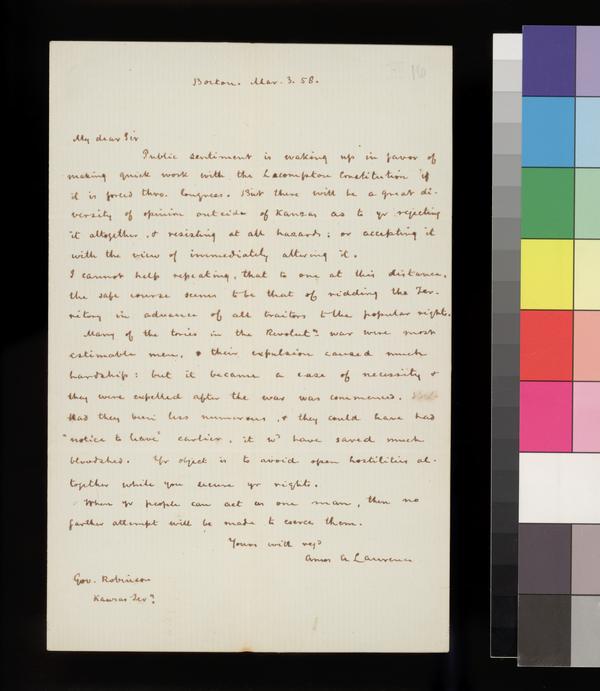 16
Boston. Mar. 3. 58.
My dear Sir
Public sentiment is waking up in favor of
making quick work with the Lecompton Constitution if
it is forced thro. Congress. But there will be a great di-
versity of opinion outside of Kansas as to yr rejecting
it altogether, & resisting at all hazards; or accepting it
with the view of immediately altering it.
I cannot help repeating, that to one at this distance,
the safe course seems to be that of ridding the Ter-
ritory in advance of all traitors to the popular rights.
Many of the tories in the Revolutn war were most
estimable men, & their expulsion caused much
hardship: but it became a case of necessity &
they were expelled after the war was commenced.
Had they been less numerous, & they could have had
"notice to leave" earlier, it wd have saved much
bloodshed. Yr object is to avoid open hostilities al-
together while you secure yr rights.
When yr people can act as one man, then no
farther attempt will be made to coerce them.
Yours with resp
Amos A Lawrence
Gov. Robinson
Kansas Tery